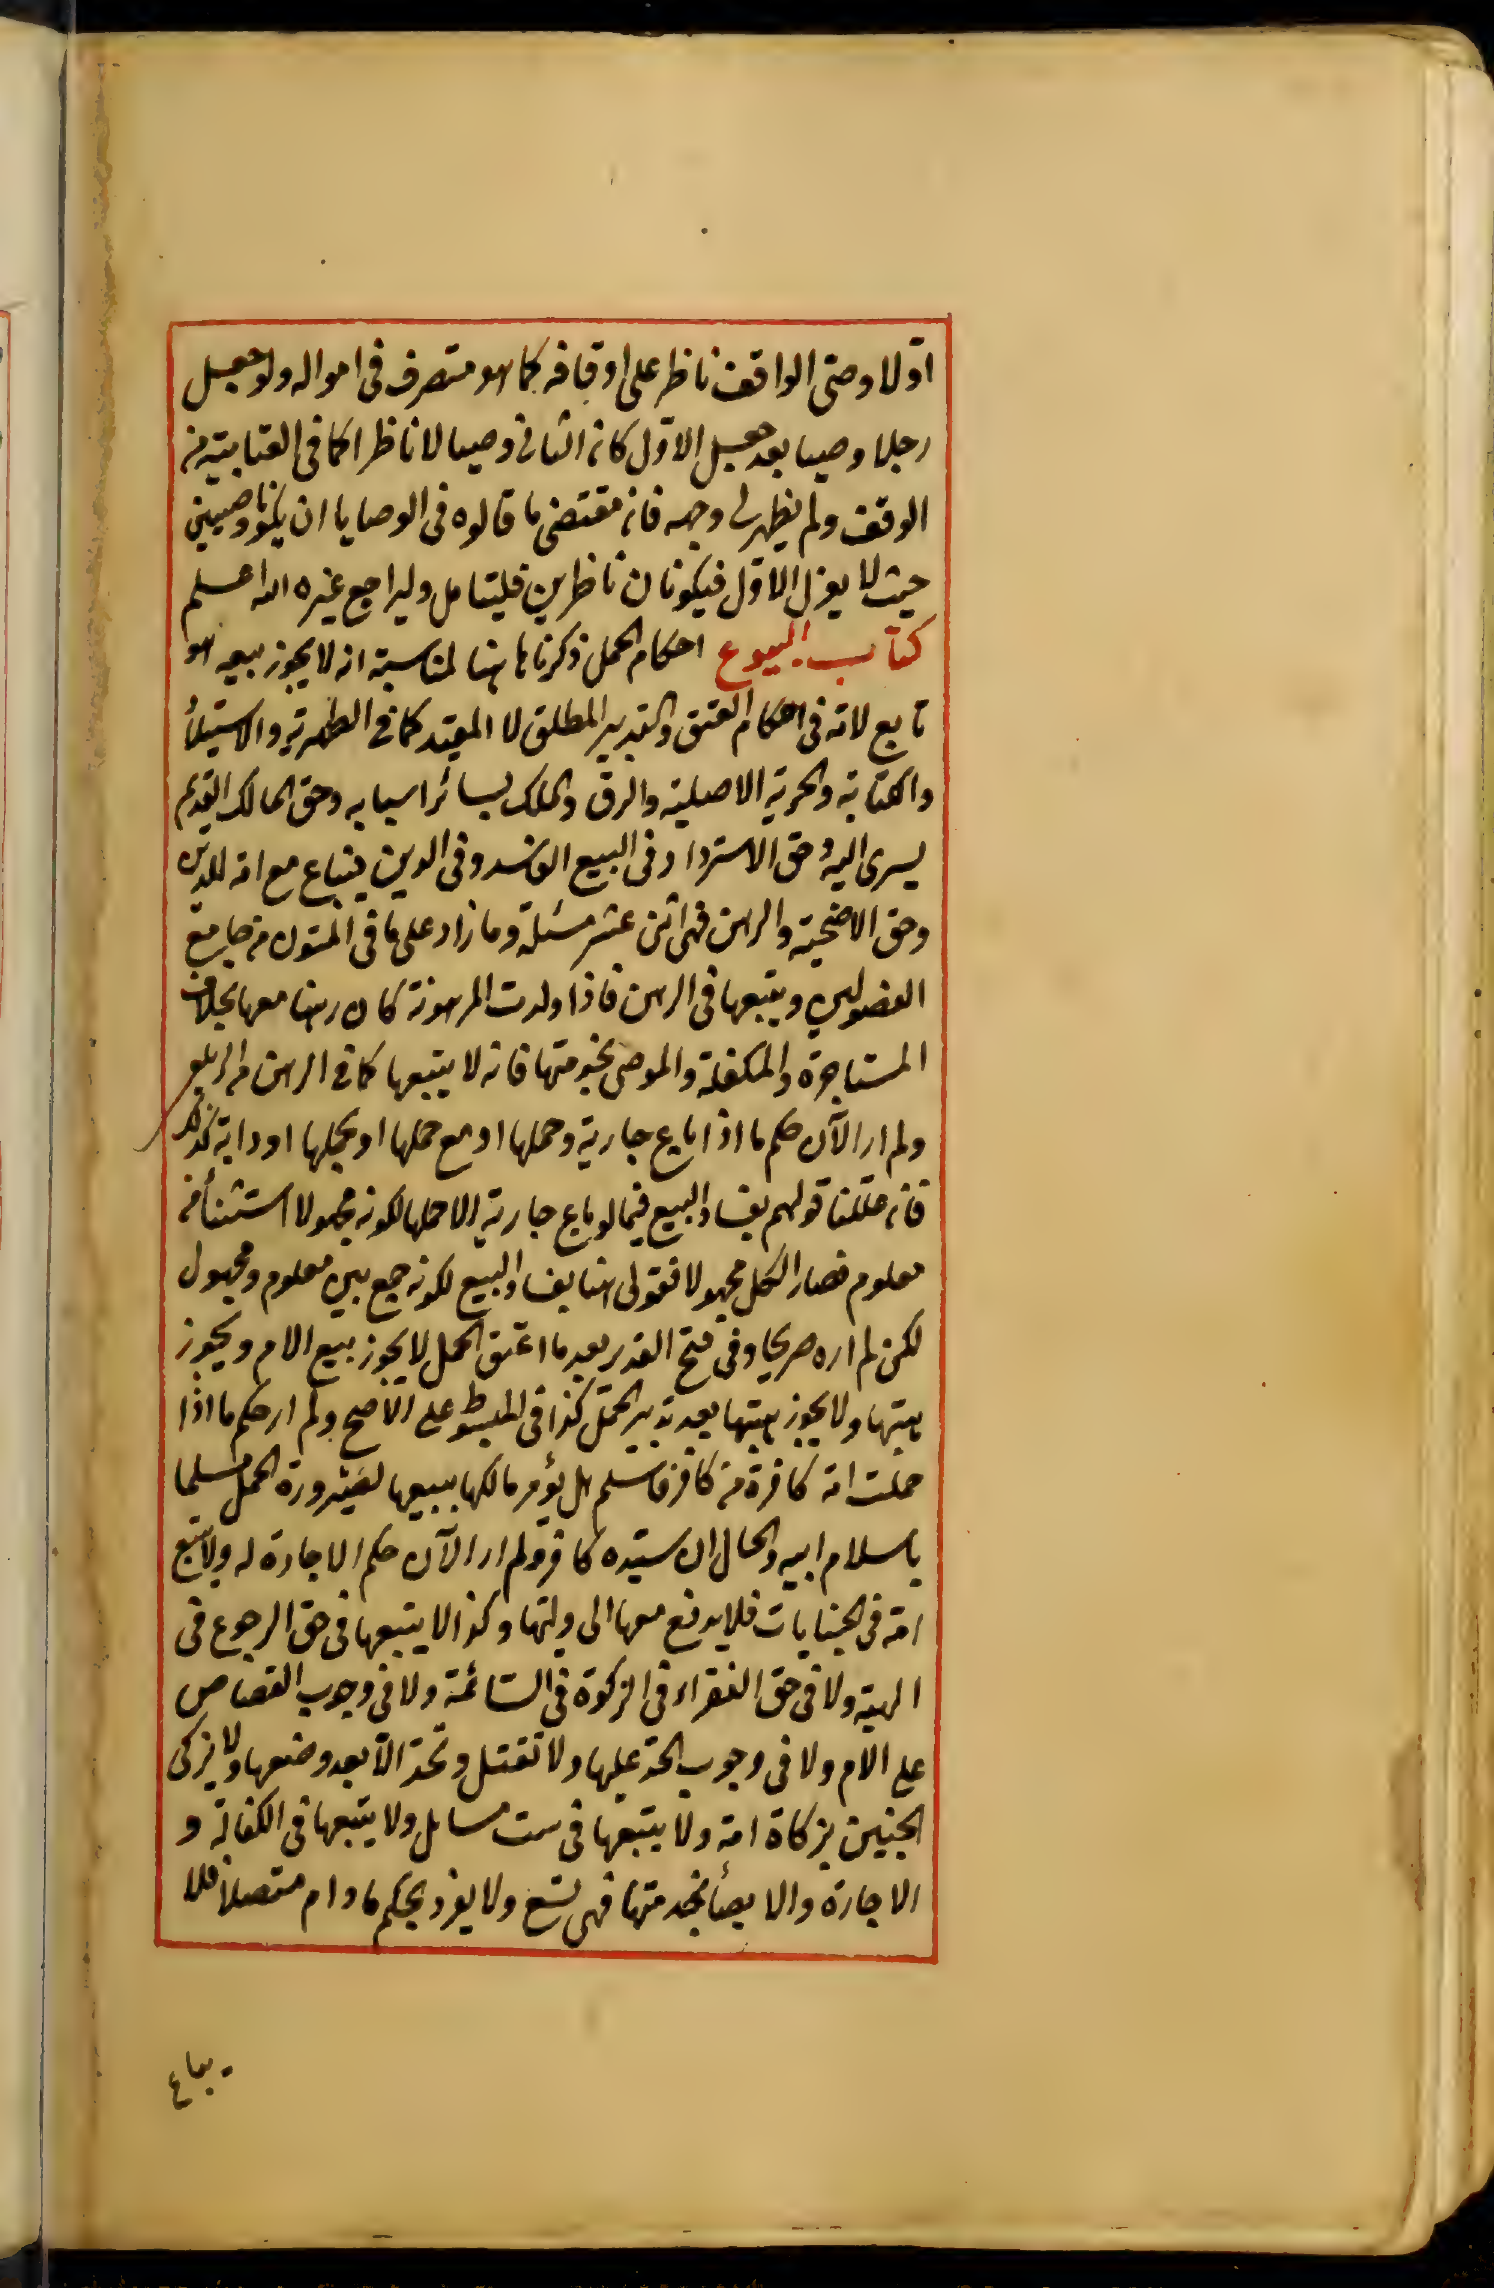 اولا وصى الواقف ناظر على اوقافه كما هو متصرف فى امواله ولو جعل
رجلا وصيا بعد جعل الاول كان الثانى وصيا لا ناظرا كما فى العتابية من
الوقف ولم يظهر لى وجهه فان مقتضى ما قالوه فى الوصايا ان يكونا وصيين
حيث لا يعزل الاول فيكونان ناظرين فليتامل وليراجع غيره الله اعلم
كتاب البيوع احكام الحمل ذكرناها هنا لمناسبة انه لا يجوز بيعه هو
تابع لامه فى احكام العتق والتدبير المطلق لا المقيد كما فى الظهيرية والاستيلأ
والكتابة والحرية الاصلية والرق والملك بسائر اسبابه وحق المالك القديم
يسرى اليه وحق الاسترداد فى البيع الفاسد وفى الدين فيباع مع امه للدين
وحق الاضحية والرهن فهى اثنى عشر مسئلة وما زاد على ما فى المتون من جامع
الفصولين ويتبعها فى الرهن فاذا ولدت المرهونة كان رهنا معها بخلاف
المستاجرة والمكفلة والموصى بخدمتها فانه لا يتبعها كما فى الرهن من الزيلعى
ولم ار الآن حكم ما اذا باع جارية وحملها او مع حملها او بحملها او دابة كذلك
فان عللنا قولهم بفساد البيع فيما لو باع جارية الا حملها لكونه مجهولا استثنأ من
معلوم فصار الكل مجهولا فنقول هنا بفساد البيع لكونه جمع بين معلوم ومجهول
لكن لم اره صريحا وفى فتح القدير بعد ما اعتق الحمل لا يجوز بيع الام ويجوز
هبتها ولا يجوز هبتها بعد تدبير الحمل كذا فى المبسوط على الاصح ولم ار حكم ما اذا
حملت امة كافرة من كافر فاسلم هل يؤمر مالكها ببيعها لصيرورة الحمل مسلما
باسلام ابيه والحال ان سيده كافر ولم ار الآن حكم الاجارة له ولا يتبع
امه فى الجنايات فلا يدفع معها الى وليها وكذا لا يتبعها فى حق الرجوع فى
الهبة ولا فى حق الفقراء فى الزكوة فى السائمة ولا فى وجوب القصاص
على الام ولا فى وجوب الحد عليها ولا تقتل وتحد الا بعد وضعها ولا يزكى
الجنين بزكاة امه ولا يتبعها فى ست مسايل ولا يتبعها فى الكفالة و
الاجارة والايصأ بخدمتها فهى تسع ولا يفرد بحكم مادام متصلا فلا
يباع